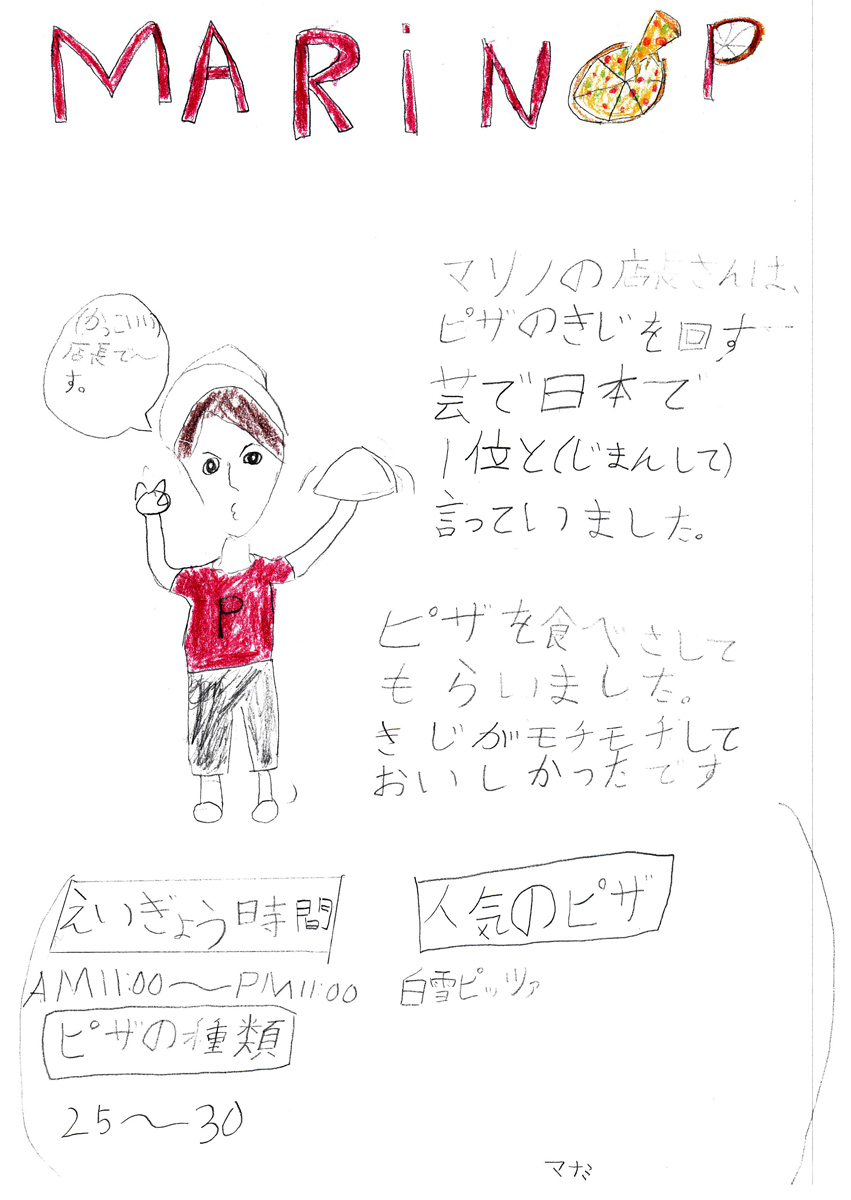 MARiNOP
(かっこいい)
店長で〜
す。
マリノの店長さんは、
ピザのきじを回す
芸で日本で
1位と(じまんして)
言っていました。
P
ピザを食べさして
もらいました。
きじがモチモチして
おいしかったです
えいぎょう時間
AM11:00〜PM11:00
ピザの種類
25〜30
人気のピザ
白雪ピッツァ
マナミ